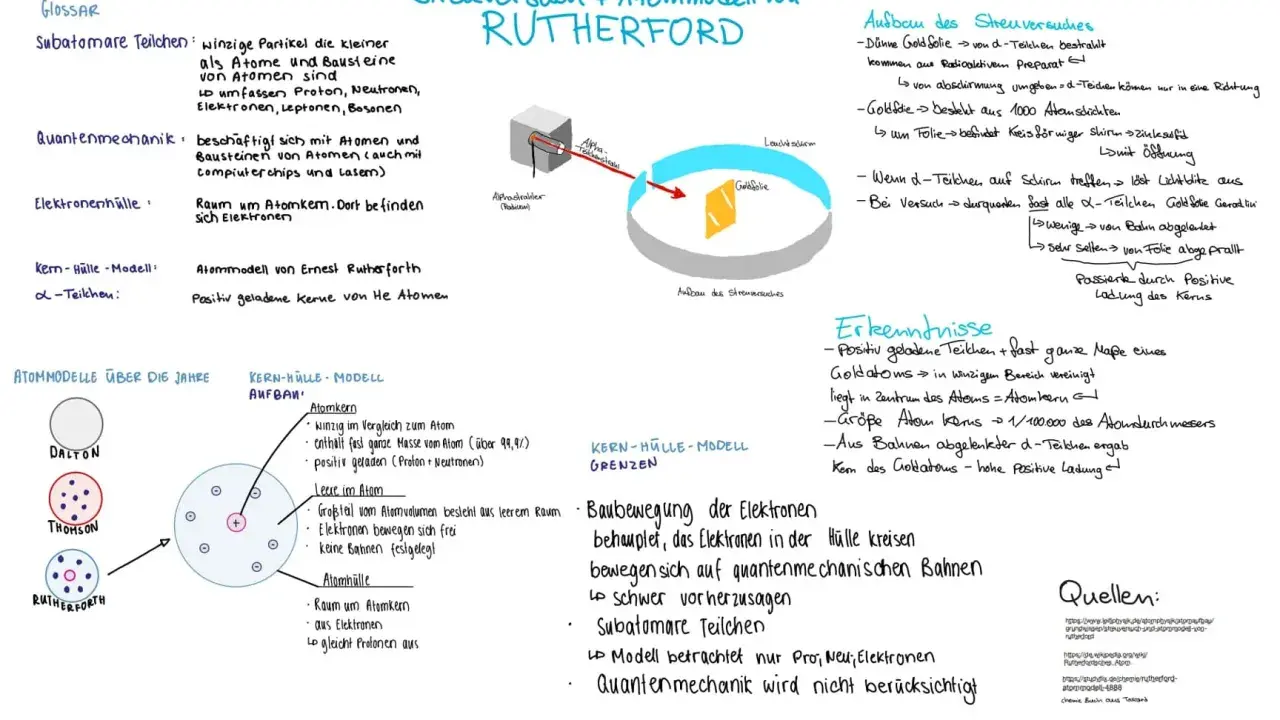 GLOSSAR
Subatomare Teilchen: winzige Partikel die kleiner
als Atome und Bausteine
von Atomen sind
↳ umfassen Proton, Neutronen,
Elektronen, Leptonen, Bosonen
Quantenmechanik: beschäftigt sich mit Atomen und
Bausteinen von Atomen (auch mit
Computerchips und Lasern)
Elektronenhülle: Raum um Atomkern. Dort befinden
sich Elektronen
Kern-Hülle-Modell: Atommodell von Ernest Rutherforth
α-Teilchen: Positiv geladene Kerne von He Atomen
RUTHERFORD
Alpha-
Teilchenstrahl
Leuchtschirm
Goldfolie
Alphastrahler
Aufbau des Streuversuches
Aufbau des Streuversuches
- Dünne Goldfolie → von α-Teilchen bestrahlt
kommen aus Radioaktivem Preparat
↳ von abschirmung umgeben = α-Teilchen können nur in eine Richtung
- Goldfolie → besteht aus 1000 Atomschichten
↳ um Folie → befindet Kreisförmiger Schirm → zinksulfid
↳ mit Öffnung
- Wenn α-Teilchen auf Schirm treffen → löst Lichtblitz aus
- Bei Versuch → durquerten fast alle α-Teilchen Goldfolie
↳ wenige → von Bahn abgelenkt
↳ sehr selten → von Folie abgeprallt
Passierte durch Positive
Ladung des Kerns
Erkenntnisse
- Positiv geladene Teilchen + fast ganze Maße eines
Goldatoms → in winzigem Bereich vereinigt
liegt in Zentrum des Atoms = Atomkern
- Größe Atom Kerns → 1/100.000 des Atomdurchmessers
- Aus Bahnen abgelenkter α-Teilchen ergab
Kern des Goldatoms - hohe Positive Ladung
ATOMMODELLE ÜBER DIE JAHRE
DALTON
THOMSON
RUTHERFORTH
KERN-HÜLLE-MODELL
AUFBAU:
Atomkern
· winzig im Vergleich zum Atom
· enthält fast ganze Masse vom Atom (über 99,9%)
· positiv geladen (Proton + Neutronen)
Leere im Atom
· Großteil vom Atomvolumen besteht aus leerem Raum
· Elektronen bewegen sich frei
· keine Bahnen festgelegt
Atomhülle
· Raum um Atomkern
· aus Elektronen
↳ gleicht Protonen aus
KERN-HÜLLE-MODELL
GRENZEN
· Baubewegung der Elektronen
behauptet, das Elektronen in der Hülle kreisen
bewegen sich auf quantenmechanischen Bahnen
↳ schwer vorherzusagen
· Subatomare Teilchen
↳ Modell betrachtet nur Pro, Neu, Elektronen
· Quantenmechanik wird nicht berücksichtigt
Quellen:
https://www.leifiphysik.de/atomphysik/atomaufbau/
grundwissen/streuversuch-und-atommodell-von-
rutherford
https://de.wikipedia.org/wiki/
Rutherfordsches_Atom
https://studyflix.de/chemie/rutherford-
atommodell-4888
chemie Buch aus